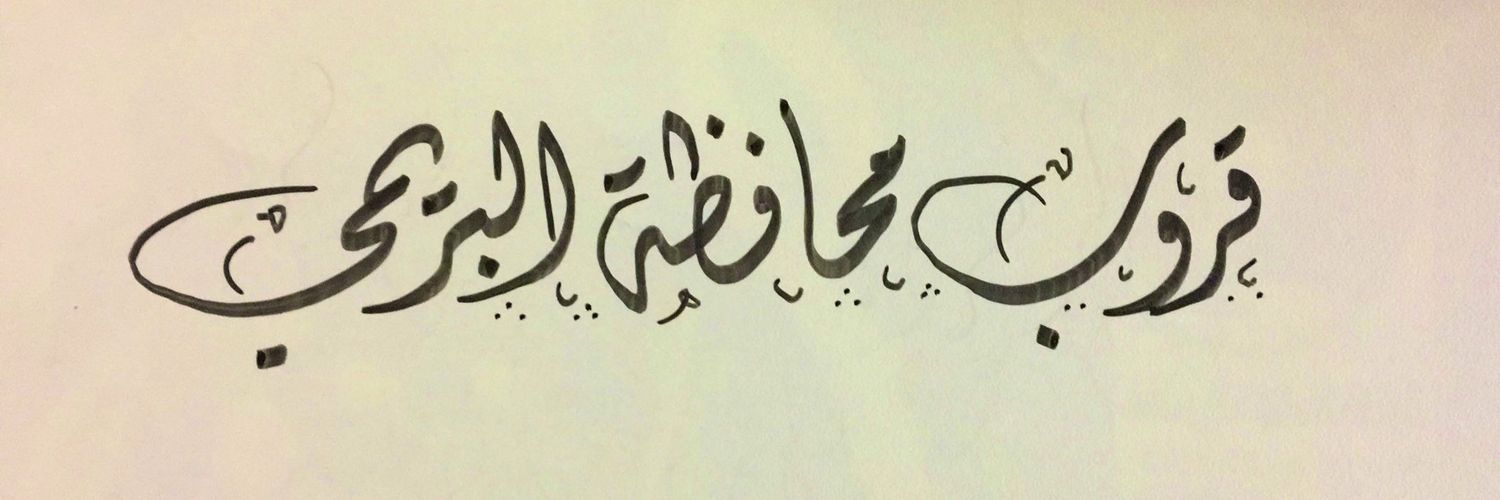 قروب محافظة البريمي